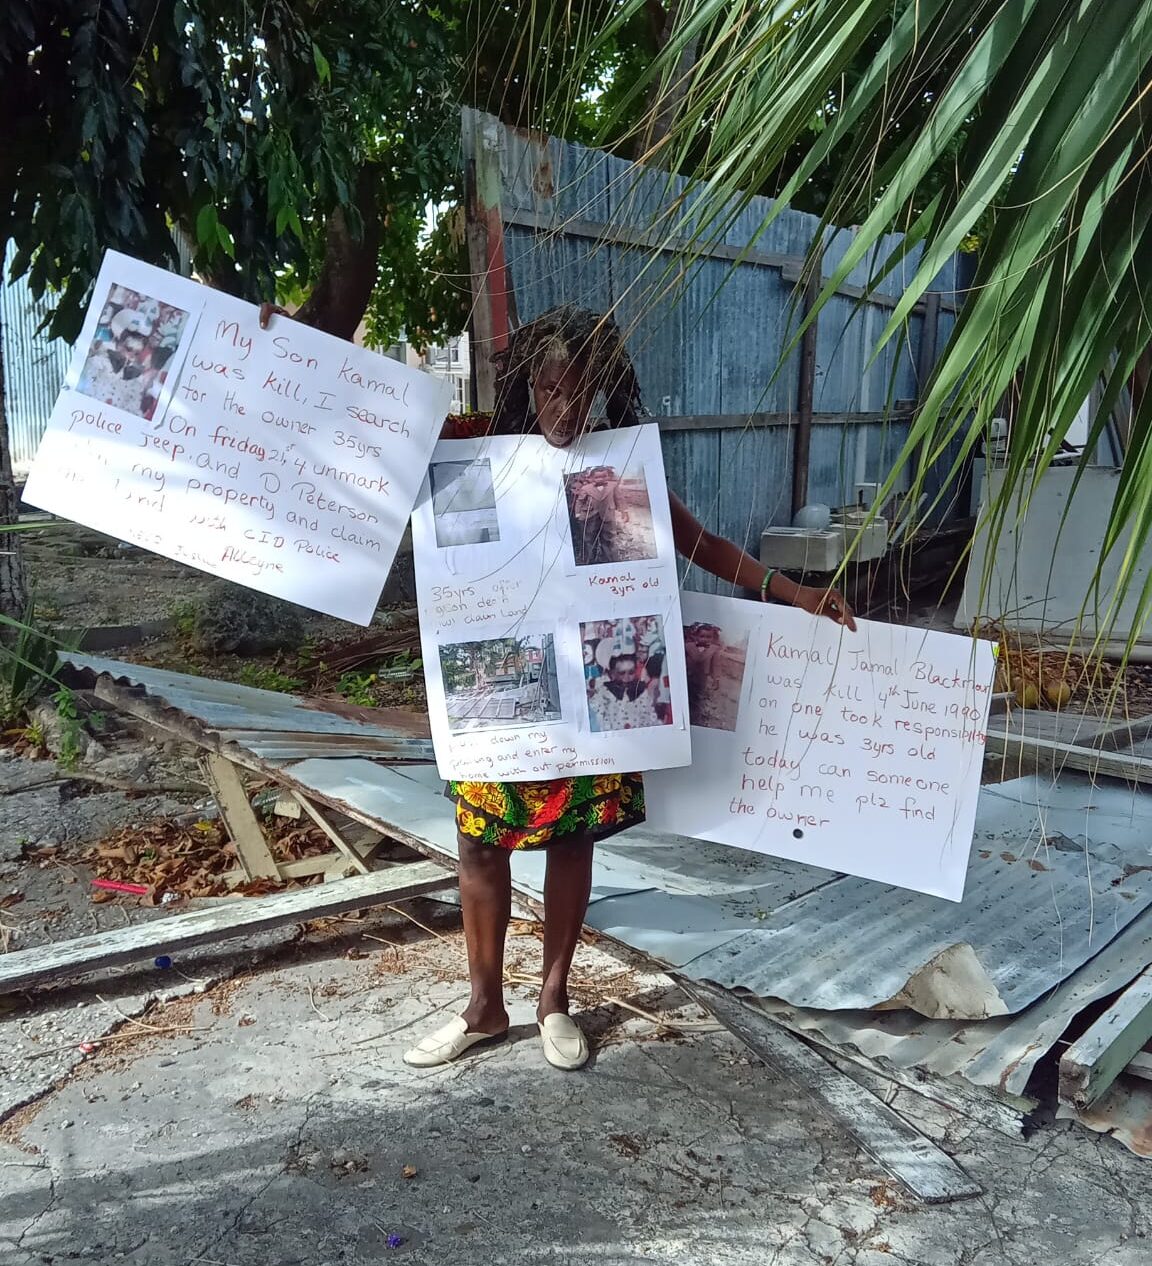 My Son Kamal
was kill, I search
for the owner 35yrs
On friday 21st 4 unmark
police Jeep, and D. Peterson
my property and claim
land with CID Police
Alleyne
35yrs after
down Land
Kamal
3yrs old
down my
and enter my
home with out permission
Kamal Jamal Blackman
was kill 4th June 1990
on one took responsibilty
he was 3yrs old
today can someone
help me plz find
the owner